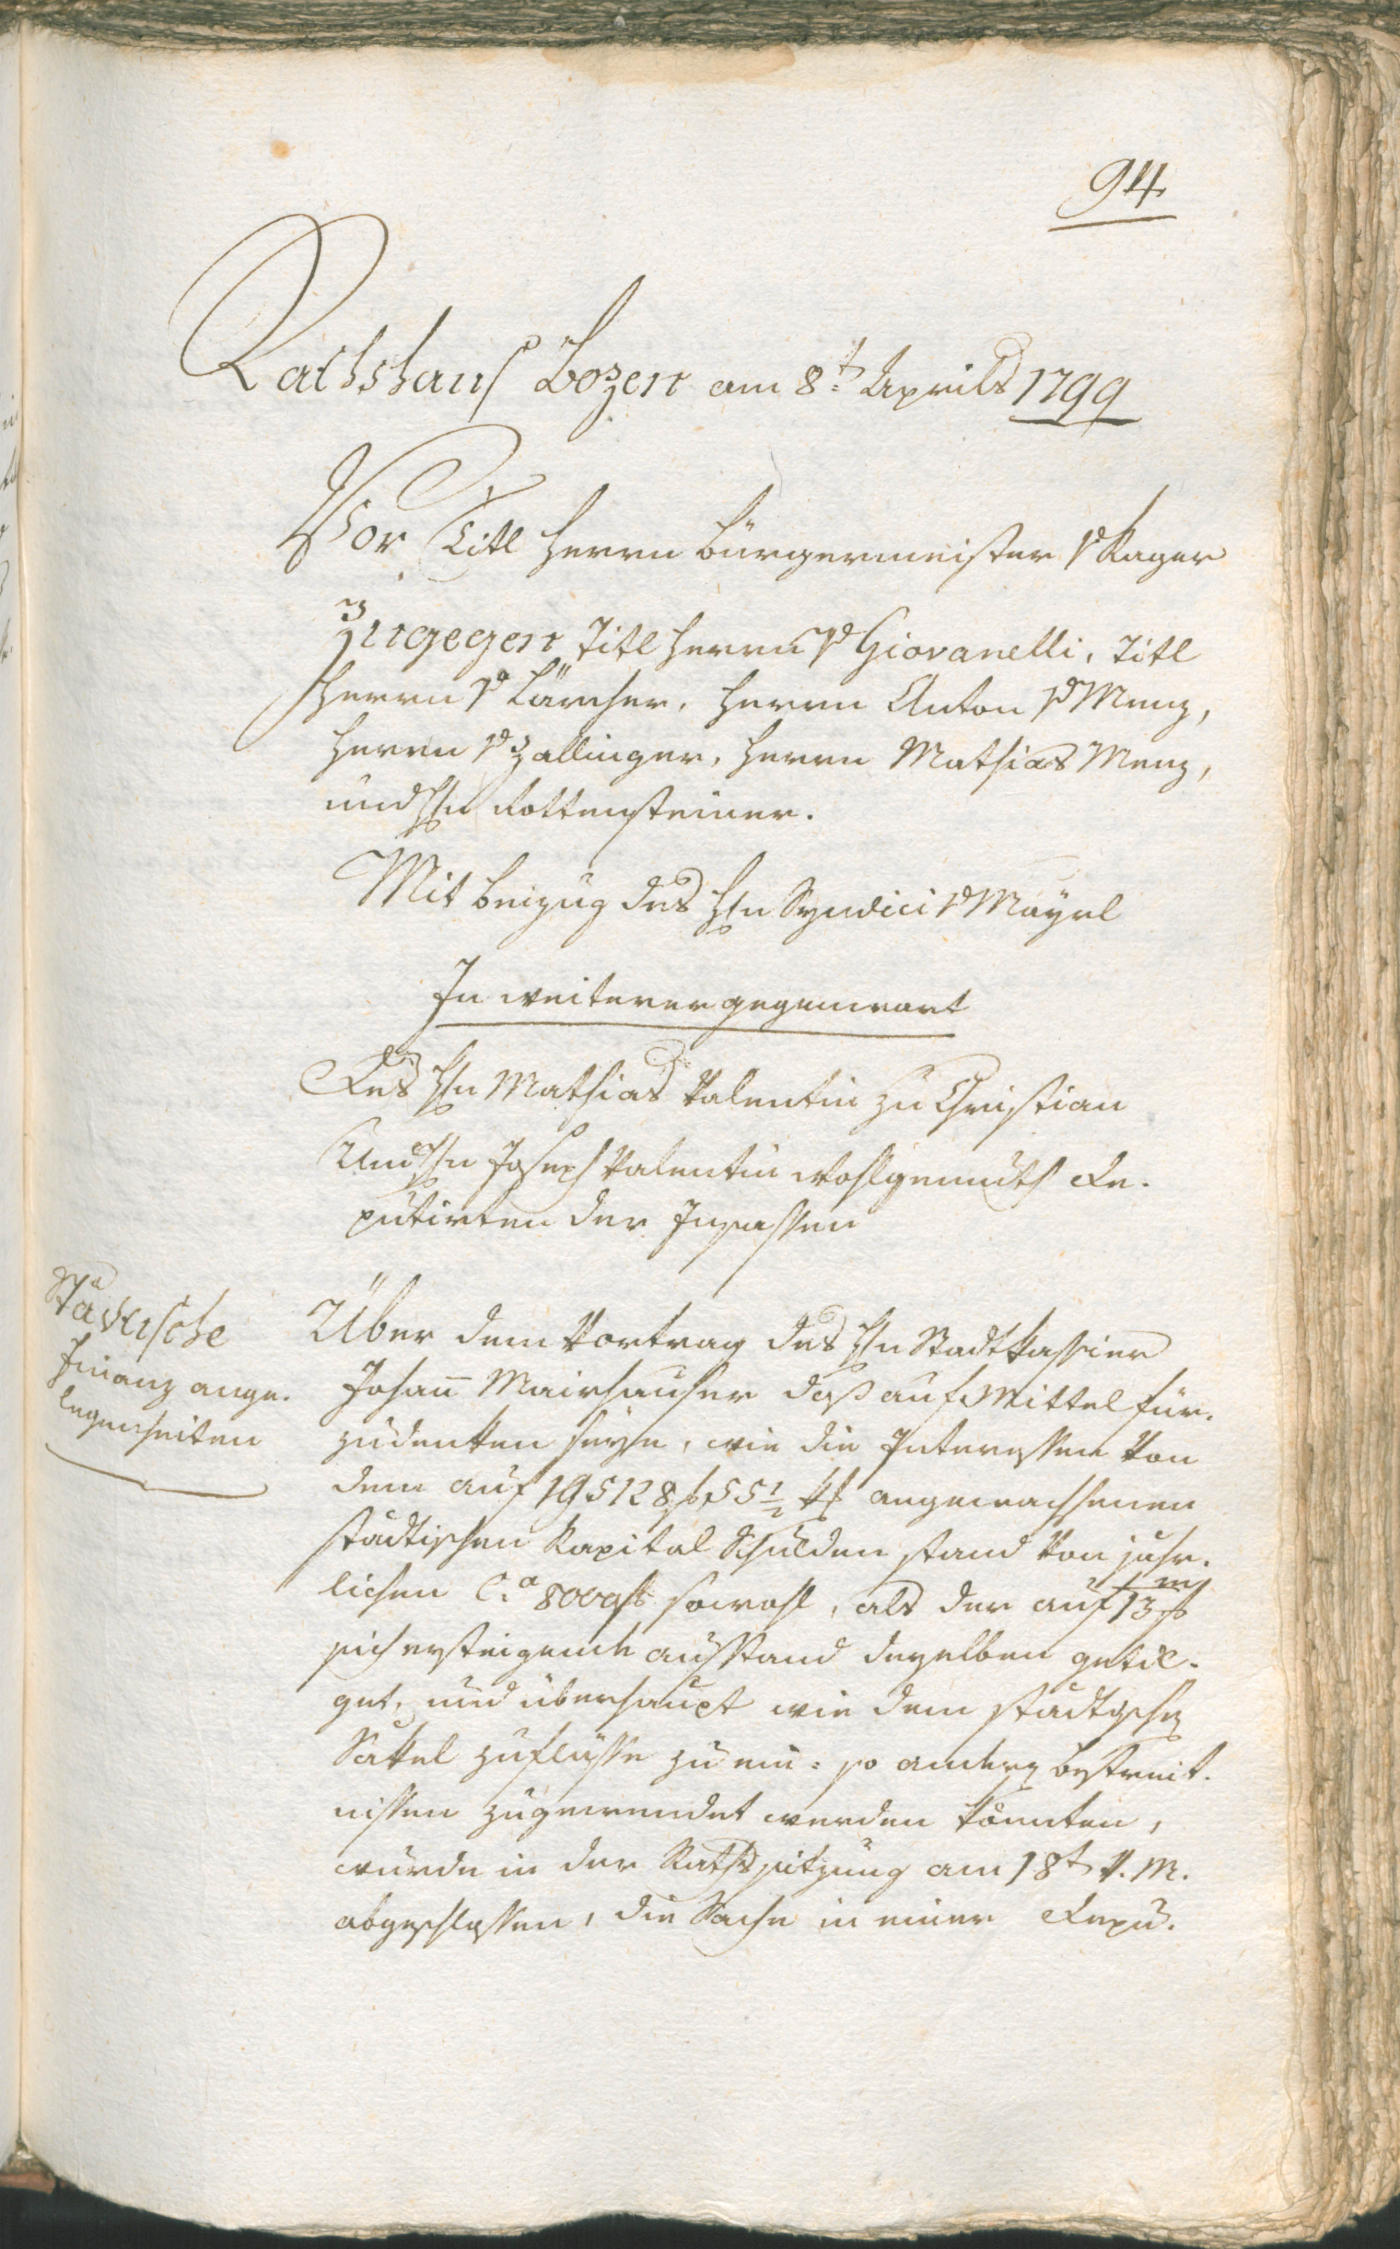 94.
Rathshaus Bozen am 8t. Aprils 1799
Vor Titl Herrn Bürgermeister v Kager
Zugegen Titl Herrn v Giovanelli, Titl
Herrn v Lärcher, Herrn Anton v Menz,
Herrn v Zallinger, Herrn Mathias Menz,
und Hn Rottensteiner.
Mit beizug des Hn Syndici v Mayrl
In weiterer gegenwart
Des Hn Mathias Valentin zu Christian
Und Hn Joseph Valentin Wohlgemuth De-
putirten der Insassen
Städtische
finanz ange-
legenheiten
Über dem Vortrag des Hn Stadt Kassier
Johann Mairhauser daß auf Mittel für-
zudenken seye, wie die Interessen von
dem auf 195128 f 55 1/2 kr angewachsenen
städtischen Kapital Schulden stand von jähr-
lichen Ca. 8000 f sowohl, als der auf 13m f
sich ersteigende ausstand deselben getil-
get, und überhaupt wie dem städtischen
Säkel zuflüsse zu ein- so andern bestreit-
nissen zugewendet werden könnten,
wurde in der Rathssitzung am 18t v. M.
abgeschlossen, die Sache in einer Depu-